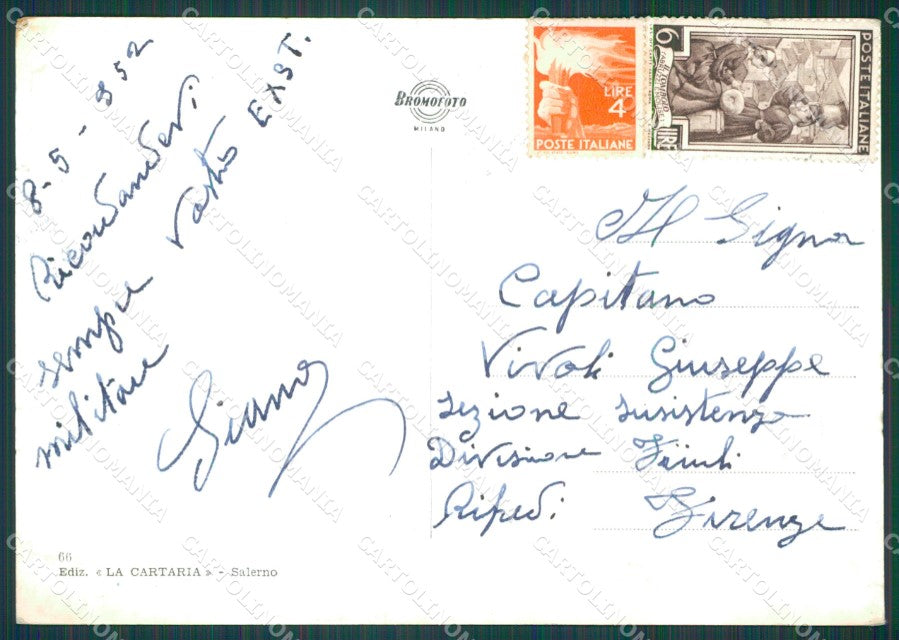 8-5-952
Ricordandovi
sempre Vostro Ex St.
militare
BROMOFOTO
MILANO
LIRE
4
POSTE ITALIANE
6
LIRE
POSTE ITALIANE
Il Signor
Capitano
Vivoli Giuseppe
Sezione Susistenza
Divisione Friuli
Rifredi Firenze
66
Ediz. « LA CARTARIA » - Salerno
CARTOLINOMANIA